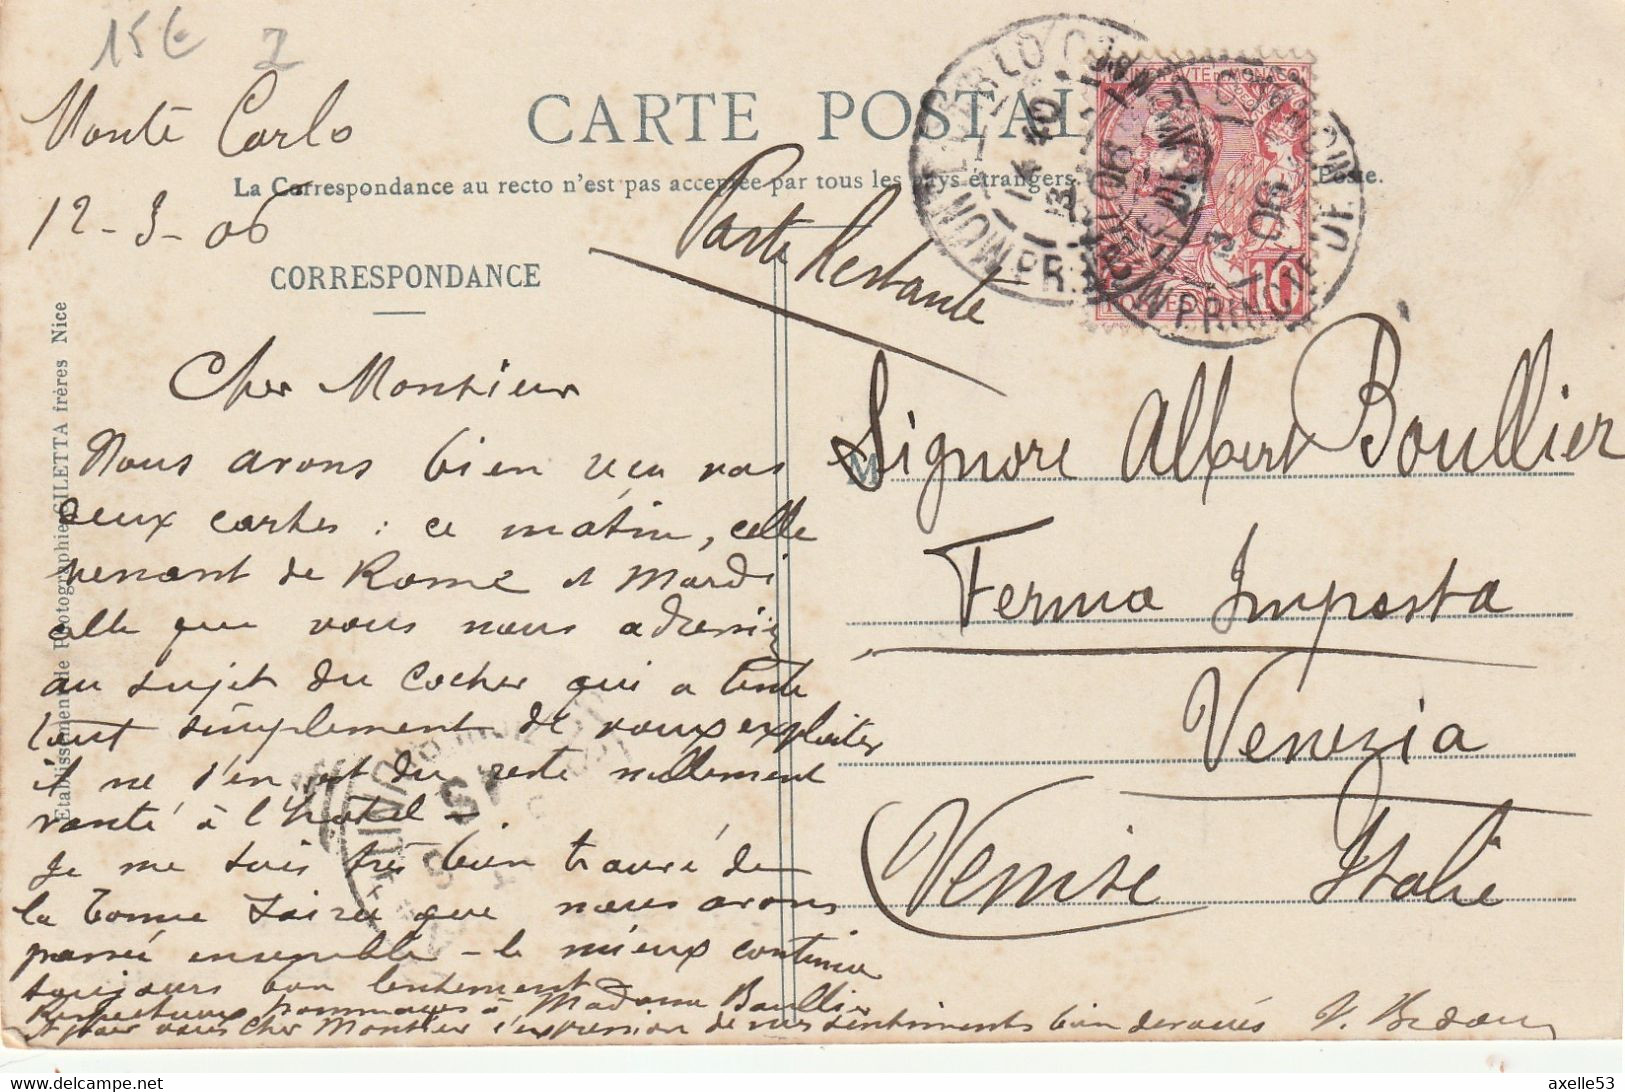 15€ 2
Monte Carlo
12-3-06
CARTE POSTALE
La Correspondance au recto n'est pas acceptée par tous les pays étrangers. Poste.
CORRESPONDANCE
Poste Restante
PRINCIPAUTÉ DE MONACO
10
MONTE-CARLO
PRINCIPAUTÉ DE MONACO
06
Cher Monsieur
Nous avons bien reçu vos
deux cartes : ce matin, celle
venant de Rome et Mardi
celle que vous nous adressiez
au sujet du cocher qui a tenté
tout simplement de vous exploiter
il ne s'en est du reste nullement
vanté à l'hôtel -
Je me suis très bien trouvé de
la bonne soirée que nous avons
passée ensemble - le mieux continue
toujours bon lentement
Respectueux hommages à Madame Boullier
et pour vous cher Monsieur l'expression de mes sentiments bien dévoués
Signore Albert Boullier
M
Ferma Imposta
Venezia
Venise Italie
Etablissement de Photographie GILETTA frères Nice
axelle53